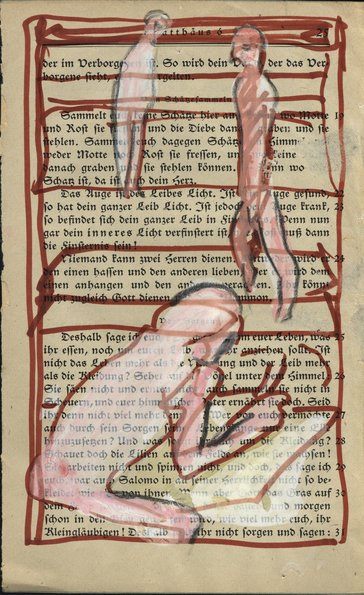 Matthäus 6 25
der im Verborgenen ist. So wird dein der das Ver-
borgene sieht, vergelten.
Schätzesammeln
Sammelt keine Schätze hier auf wo Motte 19
und Rost sie und die Diebe danach graben und sie
stehlen. Sammelt euch dagegen Schätze Himmel 20
weder Motte Rost sie fressen, und keine
danach graben sie stehlen können. wo 21
Schatz ist, da ist auch dein Herz.
Das Auge ist des Leibes Licht. Ist Auge gesund, 22
so hat dein ganzer Leib Licht. Ist jedoch Auge krank, 23
so befindet sich dein ganzer Leib in Finsternis. Wenn nun
gar dein inneres Licht verfinstert ist, groß muß dann
die Finsternis sein!
Niemand kann zwei Herren dienen. wird er 24
den einen hassen und den anderen lieben, wird dem
einen anhangen und den Ihr könnt
nicht zugleich Gott dienen Mammon.
Deshalb sage ich euch um euer Leben, was 25
ihr essen, noch um euren Leib, ihr anziehen sollt. Ist
nicht das Leben mehr als und der Leib mehr
als die Kleidung? Sehet auf Vögel unter dem Himmel. 26
Sie säen nicht und ernten auch sammeln sie nicht in
Scheuern, und euer himmlischer Vater ernährt sie doch. Seid
ihr denn nicht viel mehr Wer euch vermöchte 27
auch durch sein Sorgen seiner eine Elle
hinzuzusetzen? Und was um Kleidung? 28
Schauet doch die Lilien auf Felde, wie sie wachsen!
Sie arbeiten nicht und spinnen nicht, und doch, sage ich 29
euch, war auch Salomo in all seiner Herrlichkeit nicht so be-
kleidet wie von ihnen. Wenn aber Gott das Gras auf 30
dem und morgen
schon in den Ofen geworfen wie viel mehr euch, ihr
Kleingläubigen! Deshalb ihr nicht sorgen und sagen: 31